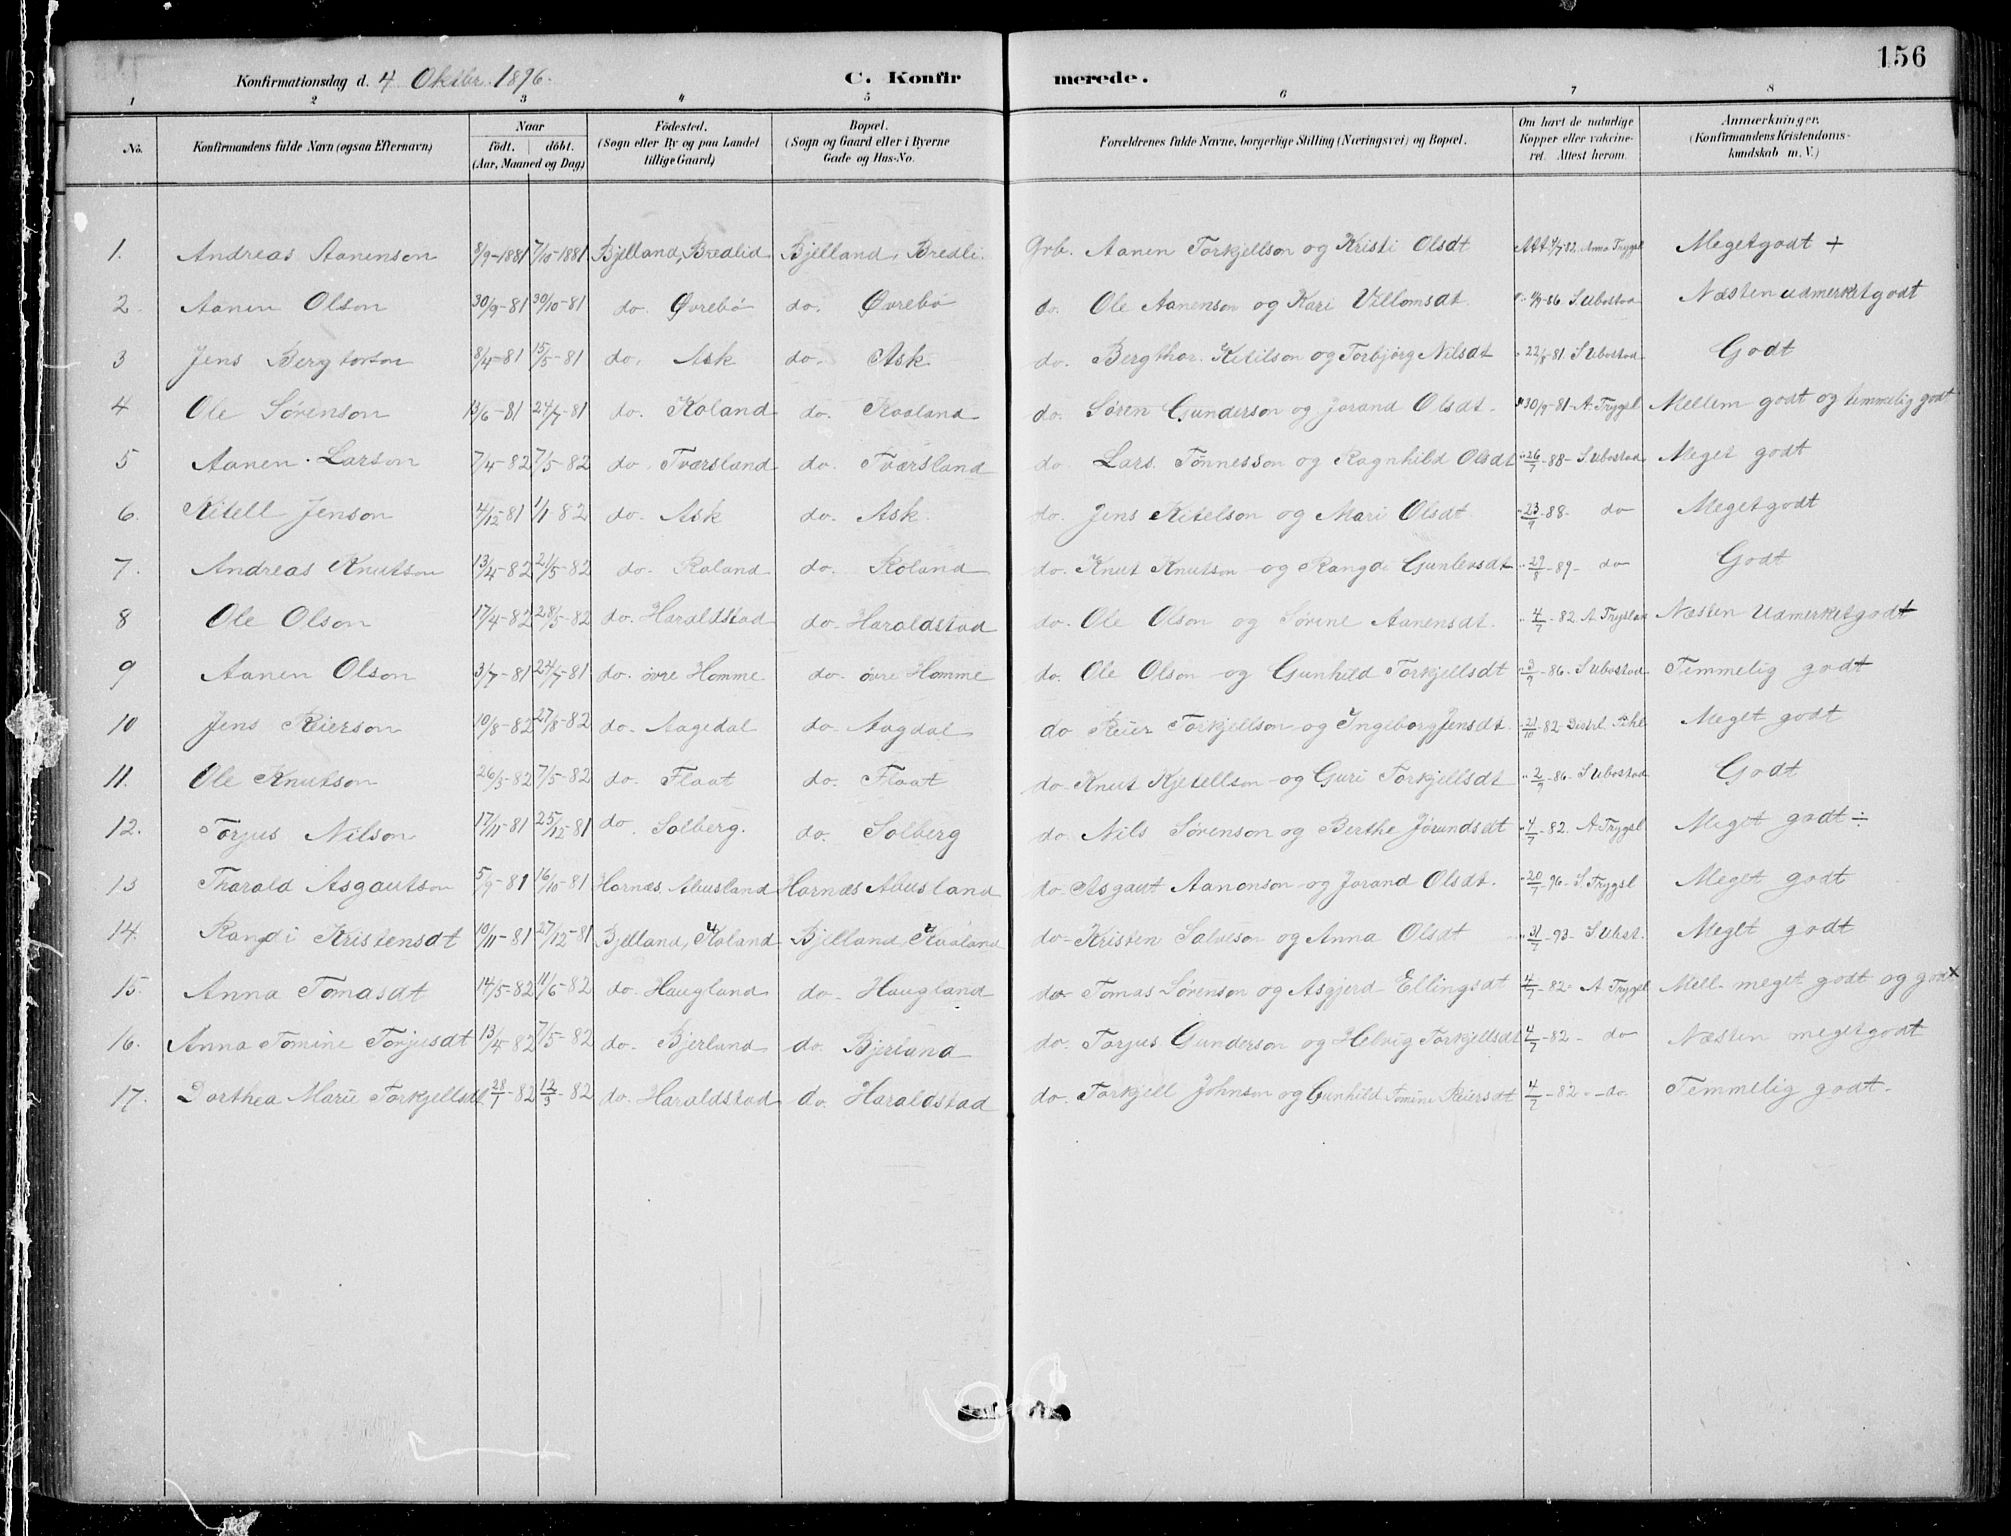 156
Konfirmationsdag d. 4 Oktbr. 1896. C. Konfirmerede.
1 2 3 4 5 6 7 8
No. Konfirmandens fulde Navn (ogsaa Efternavn) Naar födt. döbt. (Aar, Maaned og Dag) Födested. (Sogn eller By og paa Landet tillige Gaard) Bopæl. (Sogn og Gaard eller i Byerne Gade og Hus-No. Forældrenes fulde Navne, borgerlige Stilling (Næringsvei) og Bopæl. Om havt de naturlige Kopper eller vakcineret. Attest herom. Anmærkninger. (Konfirmandens Kristendomskundskab m. V.)
1. Andreas Aanenson 8/9-1881 7/10-1881 Bjelland, Bredlid Bjelland, Bredli. Grb. Aanen Torkjellson og Kristi Olsdt Att 4/7-82. Anna Trygsl Megetgodt +
2. Aanen Olson 30/9-81 30/10-81 do. Øvrebö do. Øvrebö do. Ole Aanenson og Kari Villomsdt. -86 S Ubostad Næsten udmerketgodt
3 Jens Bergtorson 8/4-81 15/5-81 do. Ask do. Ask do. Bergthor Ketilson og Torbjörg Nilsdt " 22/8-81. S Ubostad Godt
4 Ole Sørenson 13/6-81 24/7-81 do. Koland do. Kaaland do. Søren Gunderson og Jorand Olsdt. " 30/9-81- A. Trygsl Mellem godt og temmelig godt
5 Aanen Larson 7/4-82 7/5-82 do. Tværsland do. Tværsland do. Lars Tönnesson og Ragnhild Olsdt " 26/7-88- S. Ubostad Meget godt
6. Kitell Jenson 4/12-81 1/1-82 do. Ask do. Ask. do. Jens Kitelson og Mari Olsdt. " 23/9-88- do Megetgodt
7. Andreas Knutson 13/4-82 21/5-82 do. Roland do. Roland do. Knut Knutson og Rangdi Gunlevsdt " 29/8-89- do Godt
8 Ole Olson 17/4-82 28/5-82 do. Haraldstad do. Haraldstad do. Ole Olson og Sörine Aanensdt. " 4/7-82 A Tryslan Næsten Udmerketgodt
9 Aanen Olson 3/7-81 24/7-81 do. övre Homme do. övre Homme do. Ole Olson og Gunhild Torkjellsdt " 3/9-86. S Ubostad Temmelig godt
10 Jens Reierson 10/8-82 27/8-82 do. Aagedal do. Aagdal do Reier Torkjellson og Ingeborg Jensdt. " 21/10-82 Distrl. Meget godt
11. Ole Knutson 26/3-82 7/5-82 do. Flaat do. Flaat do. Knut Kjetellson og Guri Torkjellsdt " 2/9-86. S Ubostad Godt
12. Torjus Nilson 17/11-81 25/12-81 do. Solberg. do. Solberg do Nils Sørenson og Berthe Jörundsdt " 4/7-82. A. Trygsl Meget godt ÷
13 Tharald Asgautson 5/9-81 16/10-81 Hornæs, Abusland Hornæs Abusland do Asgaut Aanonson og Jorand Olsdt. " 20/7-96- S. Trygsl Meget godt
14. Rangdi Kristensdt 10/11-81 27/12-81 Bjelland, Koland Bjelland, Kaaland do- Kristen Salveson og Anna Olsdt " 31/7-93- S Ubst. Meget godt
15. Anna Tomasdt 14/5-82 11/6-82 do. Haugland do. Haugland do Tomas Sørenson og Asgjerd Ellingsdt 4/7-82- A Trygsl Mell- meget godt og godt
16. Anna Tomine Torjusdt 13/4-82 7/5-82 do. Bjerland do. Bjerland do. Torjus Gunderson og Helvig Torkjellsdt 4/7-82- do Næsten megetgodt
17. Dorthea Marie Torkjellsdt. 28/1-82 12/3-82 do. Haraldstad do. Haraldstad do. Torkjell Johnson og Gunhild Tomine Reiersdt 4/7-82-do. Temmelig godt.